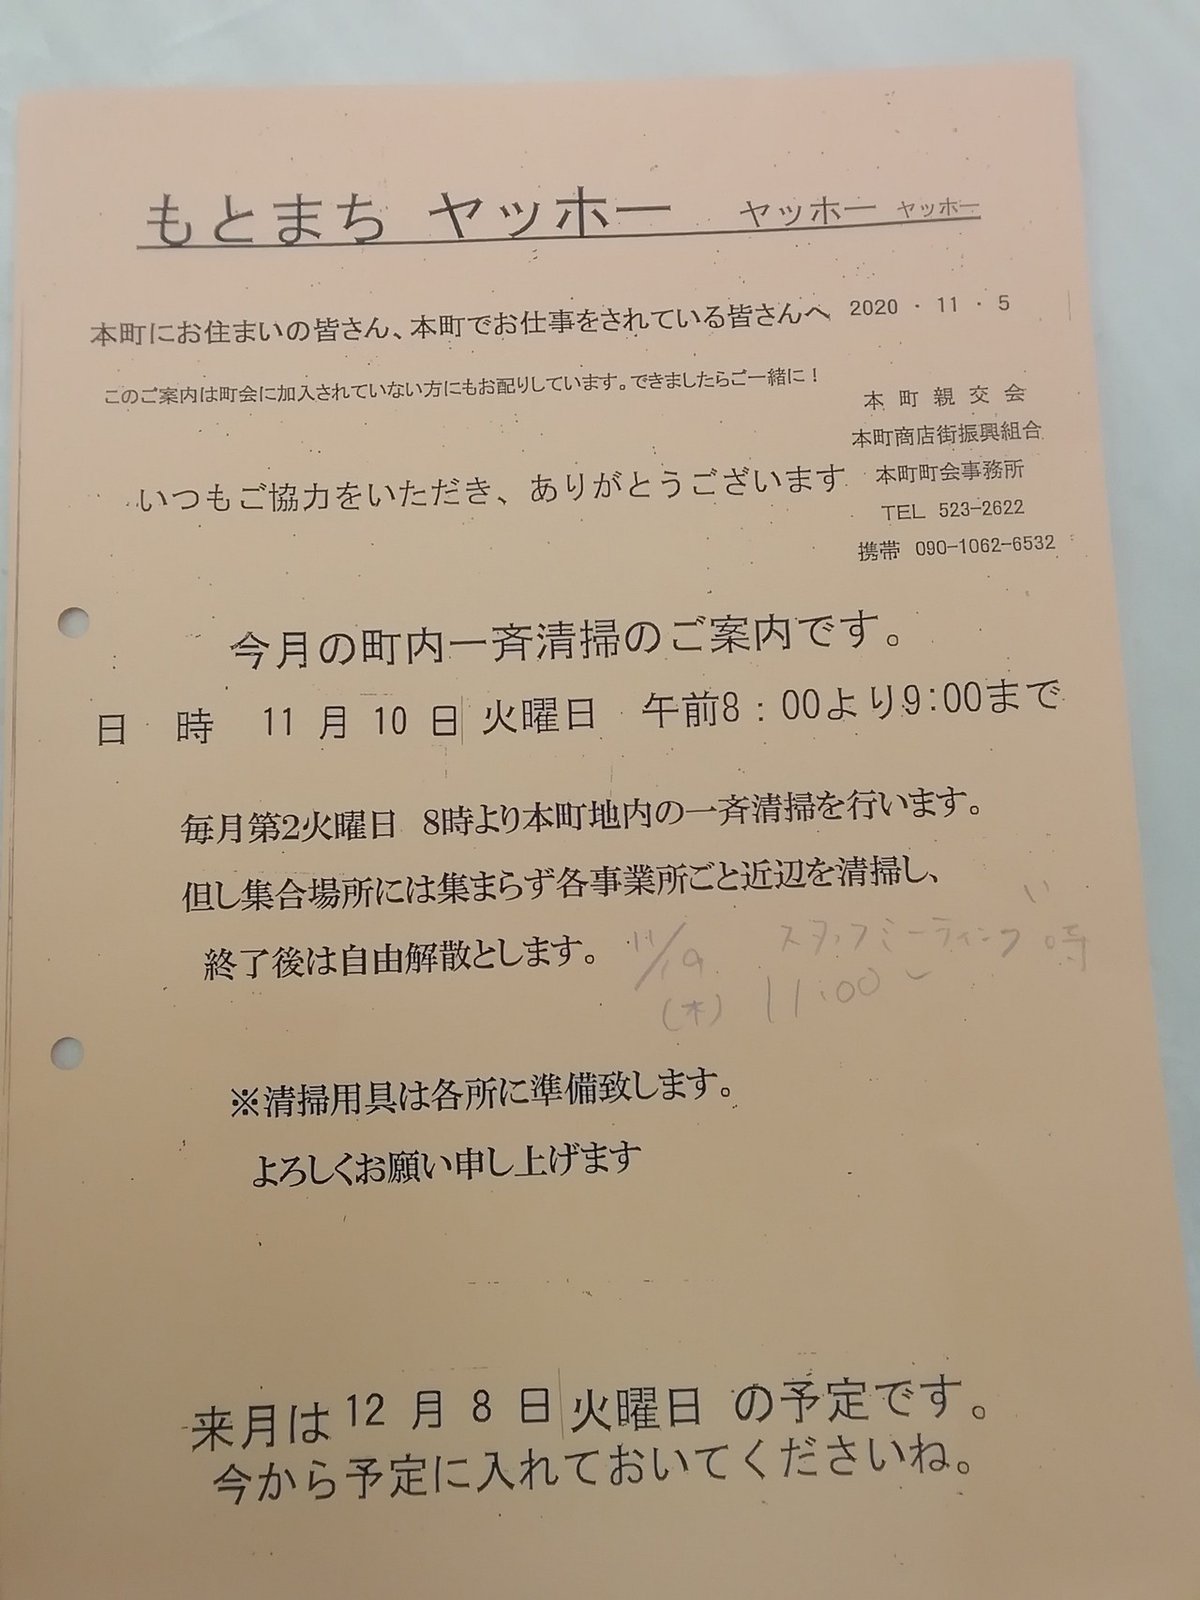 もとまち ヤッホー ヤッホー ヤッホー
本町にお住まいの皆さん、本町でお仕事をされている皆さんへ 2020・11・5
このご案内は町会に加入されていない方にもお配りしています。できましたらご一緒に!
本町親交会
本町商店街振興組合
いつもご協力をいただき、ありがとうございます
本町町会事務所
TEL 523-2622
携帯 090-1062-6532
今月の町内一斉清掃のご案内です。
日 時 11月10日 火曜日 午前8:00より9:00まで
毎月第2火曜日 8時より本町地内の一斉清掃を行います。
但し集合場所には集まらず各事業所ごと近辺を清掃し、
終了後は自由解散とします。
11/19 スタッフミーティング
(木) 11:00
※清掃用具は各所に準備致します。
よろしくお願い申し上げます
来月は12月8日 火曜日 の予定です。
今から予定に入れておいてくださいね。